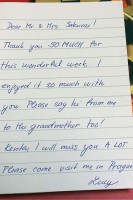 Dear Mr & Mrs Sakurai!
Thank you SO MUCH for
this wonderful week. I
enjoyed it so much with
you. Please say hi from me
to the grandmother too!
Kenta, I will miss you A LOT.
Please come visit me in Prague
Lucy